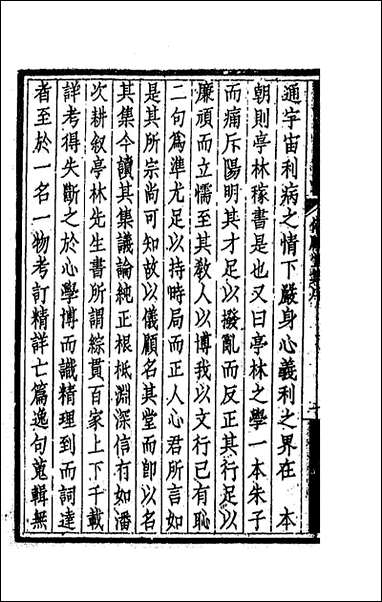 通宇宙利病之情下嚴身心義利之界在　本
朝則亭林稼書是也又曰亭林之學一本朱子
而痛斥陽明其才足以撥亂而反正其行足以
廉頑而立懦至其敎人以博我以文行已有恥
二句爲準尤足以持時局而正人心君所言如
是其所宗尚可知故以儀顧名其堂而卽以名
其集今讀其集議論純正根柢淵深信有如潘
次耕叙亭林先生書所謂綜貫百家上下千載
詳考得失斷之於心學博而識精理到而詞達
者至於一名一物考訂精詳亡篇逸句蒐輯無